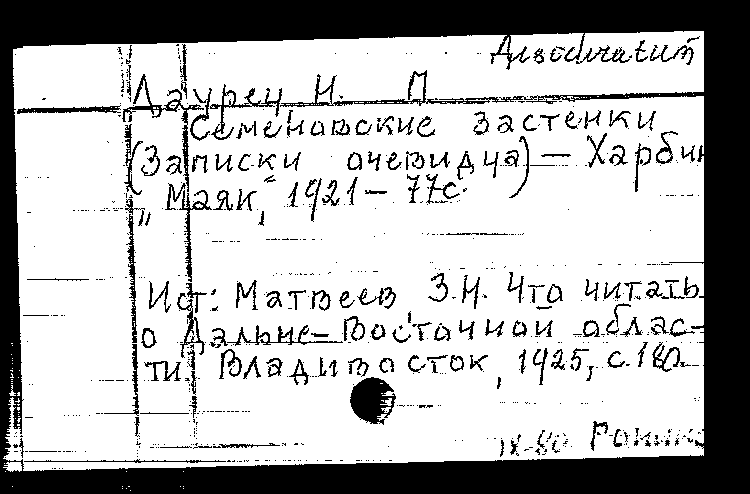 Desideratum
Лаурец Н. П.
Семеновские застенки
(Записки очевидца) — Харбин
„Маяк", 1921 — 77с.
Ист: Матвеев З.Н. Что читать
о Дальне-Восточной облас-
ти. Владивосток, 1925, с.180.
IX-80